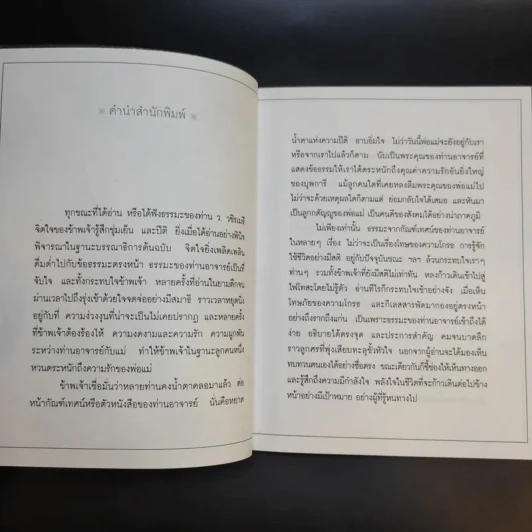 คำนำสำนักพิมพ์
ทุกขณะที่ได้อ่าน หรือได้ฟังธรรมะของท่าน ว. วชิรเมธี
จิตใจของข้าพเจ้ารู้สึกชุ่มเย็น และปีติ ยิ่งเมื่อได้อ่านอย่างพินิจ
พิจารณาในฐานะบรรณาธิการต้นฉบับ จิตใจยิ่งเพลิดเพลิน
ดื่มด่ำไปกับข้อธรรมะตรงหน้า ธรรมะของท่านอาจารย์เป็นที่
จับใจ และทั้งกระทบใจข้าพเจ้า หลายครั้งที่อ่านในยามดึกจน
ผ่านเวลาไปถึงรุ่งเช้าด้วยใจจดจ่ออย่างมีสมาธิ ราวเวลาหยุดนิ่ง
อยู่กับที่ ความง่วงงุนที่น่าจะเป็นไม่เคยปรากฏ และหลายครั้ง
ที่ข้าพเจ้าต้องร้องไห้ ความงดงามและความรัก ความผูกพัน
ระหว่างท่านอาจารย์กับแม่ ทำให้ข้าพเจ้าในฐานะลูกคนหนึ่ง
หวนตระหนักถึงความรักของพ่อแม่
ข้าพเจ้าเชื่อมั่นว่าหลายท่านคงน้ำตาคลอมาแล้ว ต่อ
หน้ากัณฑ์เทศน์หรือตัวหนังสือของท่านอาจารย์ นั่นคือหยาด
น้ำตาแห่งความปีติ อาบอิ่มใจ ไม่ว่าวันนี้พ่อแม่จะยังอยู่กับเรา
หรือจากเราไปแล้วก็ตาม นับเป็นพระคุณของท่านอาจารย์ที่
แสดงข้อธรรมให้เราได้ตระหนักถึงคุณค่าความรักอันยิ่งใหญ่
ของบุพการี แม้ลูกคนใดที่เคยหลงลืมพระคุณของพ่อแม่ไป
ไม่ว่าจะด้วยเหตุผลใดก็ตามแต่ ย่อมกลับใจได้เสมอ และหันมา
เป็นลูกกตัญญูของพ่อแม่ เป็นคนดีของสังคมได้อย่างน่าภาคภูมิ
ไม่เพียงเท่านั้น ธรรมะจากกัณฑ์เทศน์ของท่านอาจารย์
ในหลายๆ เรื่อง ไม่ว่าจะเป็นเรื่องโทษของความโกรธ การรู้จัก
ใช้ชีวิตอย่างมีสติ อยู่กับปัจจุบันขณะ ฯลฯ ล้วนกระทบใจเราๆ
ท่านๆ รวมทั้งข้าพเจ้าที่ยังมีสติไม่เท่าทัน หลงก้าวเดินเข้าไปสู่
ไฟโทสะโดยไม่รู้ตัว อ่านที่ไรก็กระทบใจเข้าอย่างจัง เมื่อเห็น
โทษภัยของความโกรธ และกิเลสสารพัดมากองอยู่ตรงหน้า
อย่างถึงรากถึงแก่น เป็นเพราะธรรมะของท่านอาจารย์เข้าถึงได้
ง่าย อธิบายได้ตรงจุด และประการสำคัญ คมจนบาดลึก
ราวลูกศรที่พุ่งเสียบทะลุขั้วหัวใจ นอกจากผู้อ่านจะได้มองเห็น
ทบทวนตนเองได้อย่างซื่อตรง ขณะเดียวกันก็ชี้ช่องให้เห็นทางออก
และรู้สึกถึงความมีกำลังใจ พลังใจในชีวิตที่จะก้าวเดินต่อไปข้าง
หน้าอย่างมีเป้าหมาย อย่างผู้ที่รู้หนทางไป